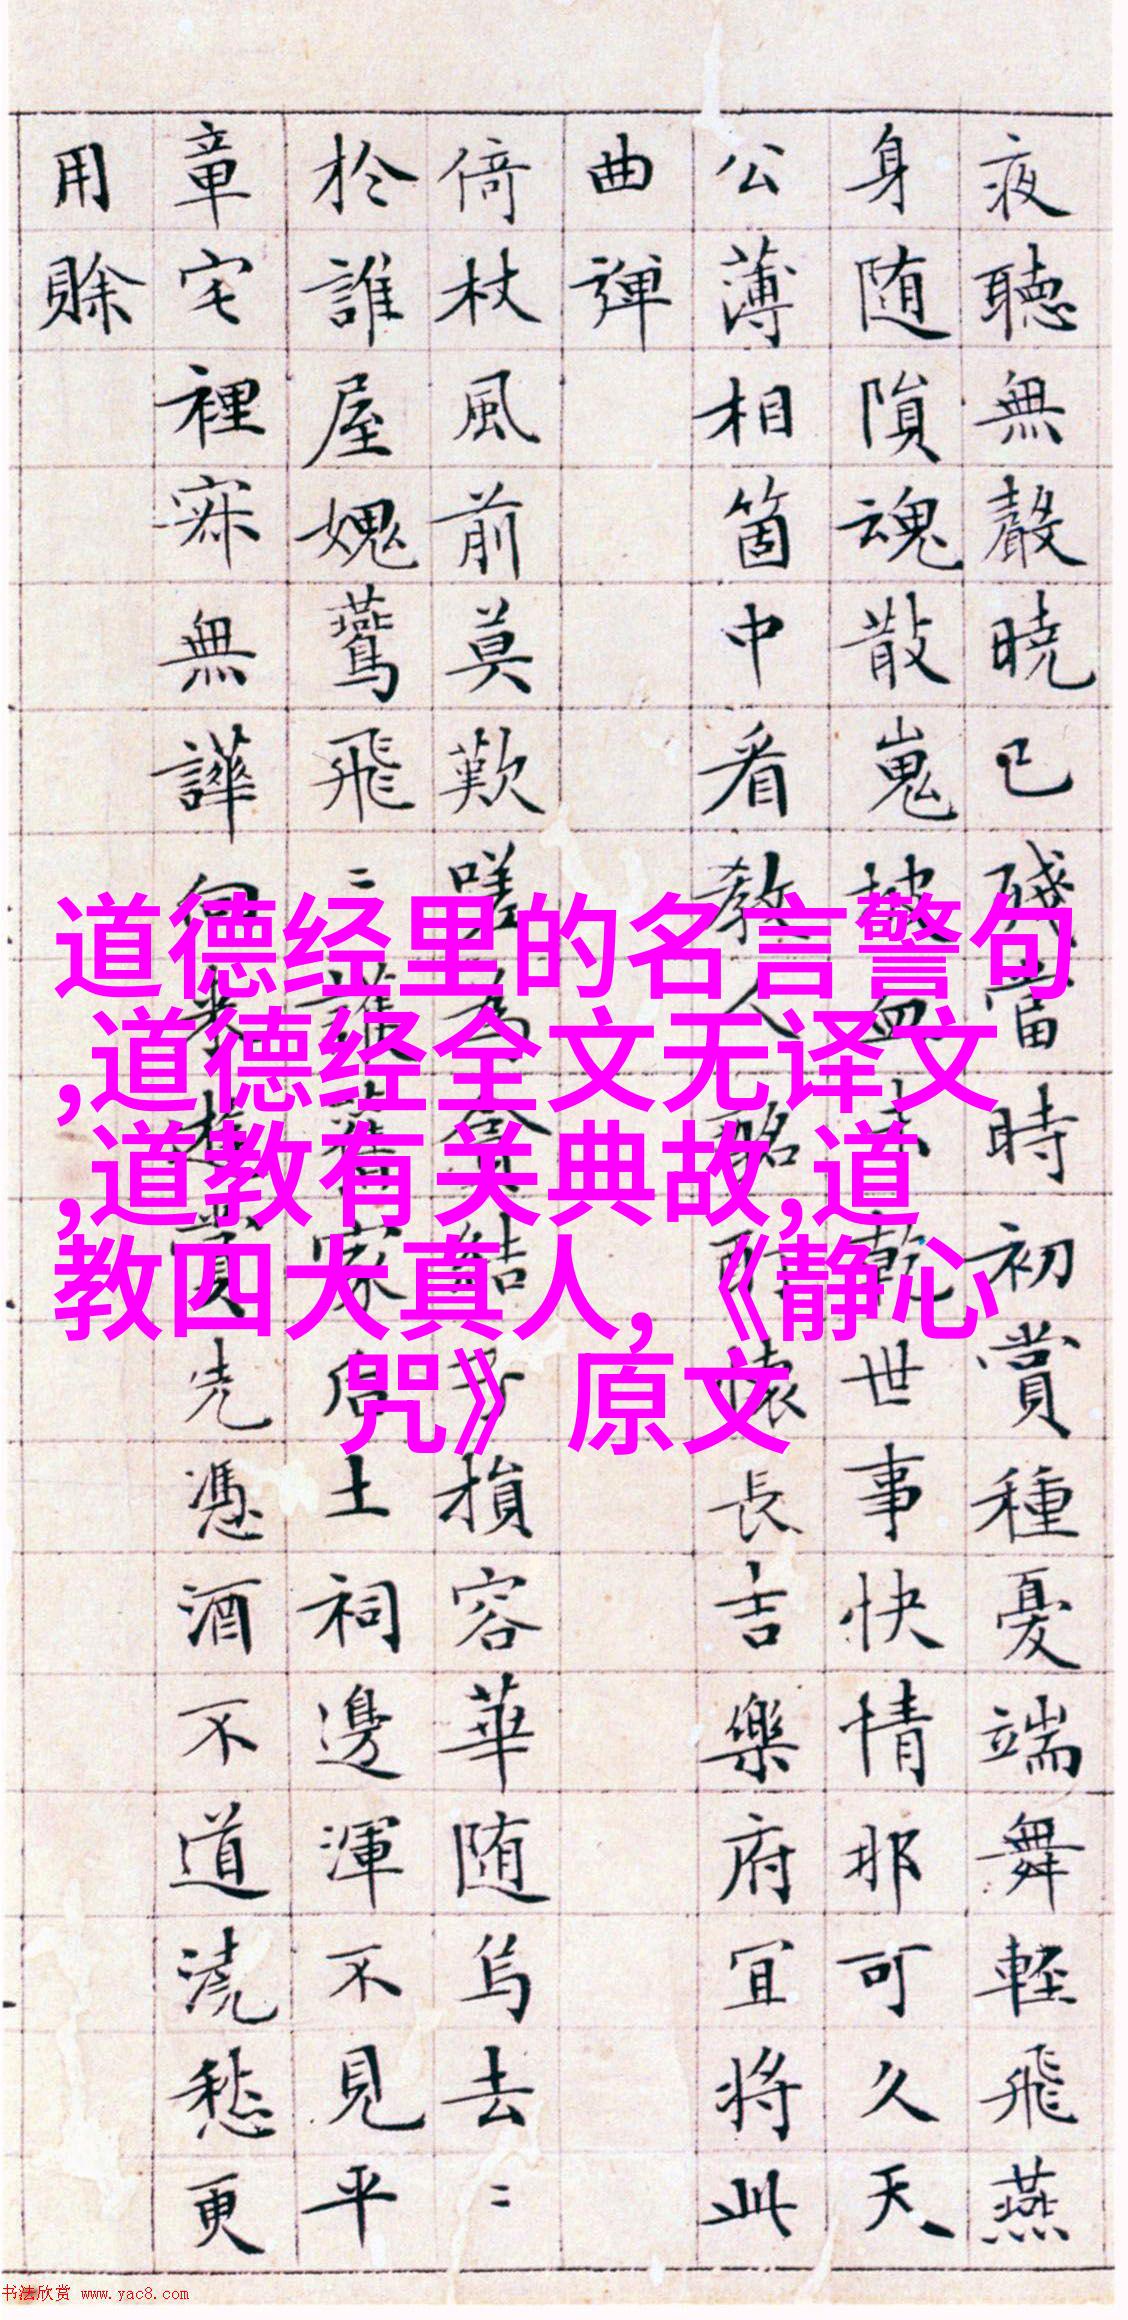 道德经里的名言警句
,道德经全文无译文
,道教有关典故,道
教四大真人,《静心
咒》原文
夜聽無聲曉已殘當時初賞種憂端舞輕飛燕
身随隕魂散嵬坡血未乾世事快情那可久天
公薄相箇中看教人酩懷長吉樂府宜將此
曲彈
倚杖風前莫歎嗟為貪結子損容華随烏去〻
於誰屋媿鷰飛〻誰家后土祠邊渾不見平
章宅裡寂無譁何來遊賞先憑酒不道澆愁更
用賖
书法欣赏 www.yac8.com